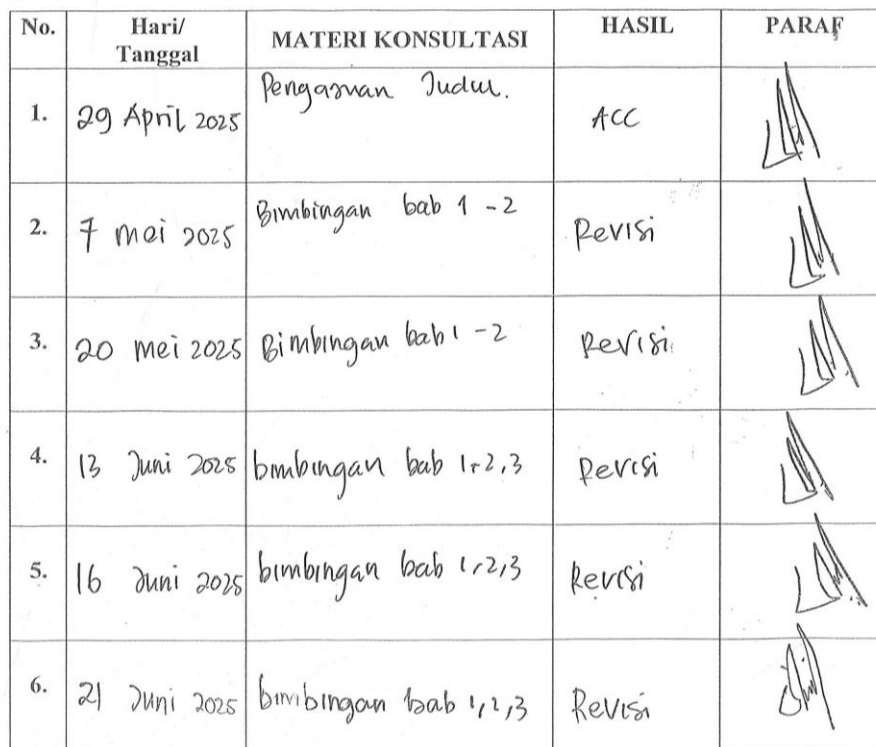 No. Hari/Tanggal MATERI KONSULTASI HASIL PARAF
1. 29 April 2025 Pengajuan Judul. ACC
2. 7 mei 2025 Bimbingan bab 1 - 2 Revisi
3. 20 mei 2025 Bimbingan bab 1 - 2 Revisi
4. 13 Juni 2025 bimbingan bab 1,2,3 Revisi
5. 16 Juni 2025 bimbingan bab 1,2,3 Revisi
6. 21 Juni 2025 bimbingan bab 1,2,3 Revisi